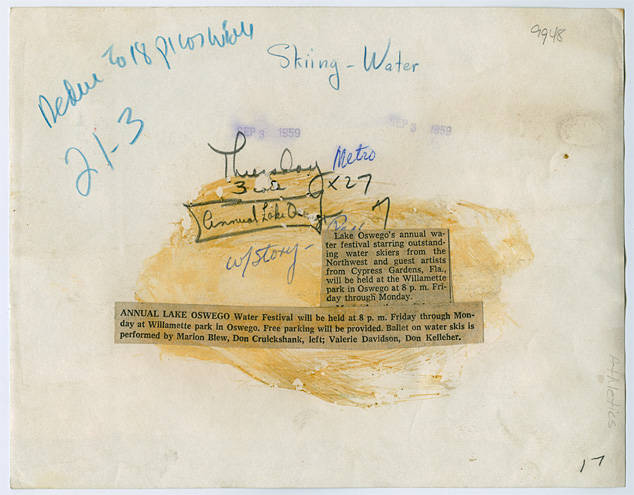 9948
Reduce to 18 picas wide
Skiing - Water
21-3
SEP 3 1959
SEP 3 1959
Thursday Metro
3 cols x 27
Annual Lake
w/story -
Lake Oswego's annual wa-
ter festival starring outstand-
ing water skiers from the
Northwest and guest artists
from Cypress Gardens, Fla.,
will be held at the Willamette
park in Oswego at 8 p. m. Fri-
day through Monday.
ANNUAL LAKE OSWEGO Water Festival will be held at 8 p. m. Friday through Mon-
day at Willamette park in Oswego. Free parking will be provided. Ballet on water skis is
performed by Marion Blew, Don Cruickshank, left; Valerie Davidson, Don Kelleher.
Athletics
17